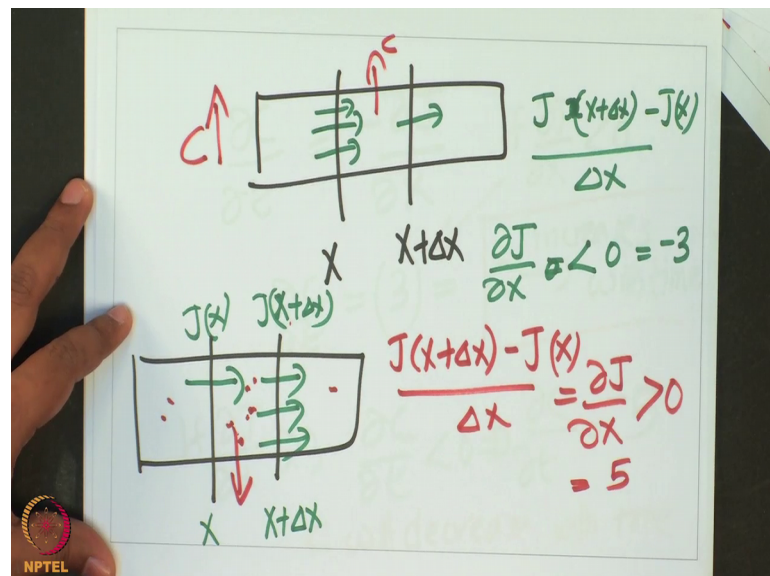 C
C
J (x+Δx) - J(x)
Δx
X
X+Δx
∂J
∂x
= < 0 = -3
J(x)
J(x+Δx)
J(x+Δx) - J(x)
Δx
= ∂J
∂x
>0
= 5
X
X+Δx
NPTEL